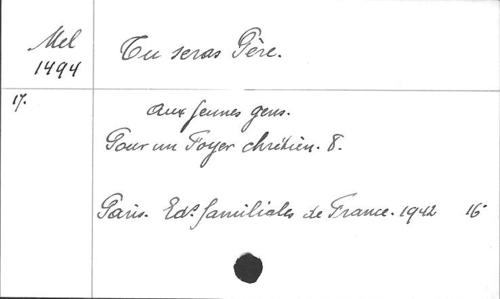 Mel
1494
Tu seras Père.
17.
Aux Jeunes gens.
Pour un Foyer chrétien. 8.
Paris. Eds familiales de France. 1942 16-